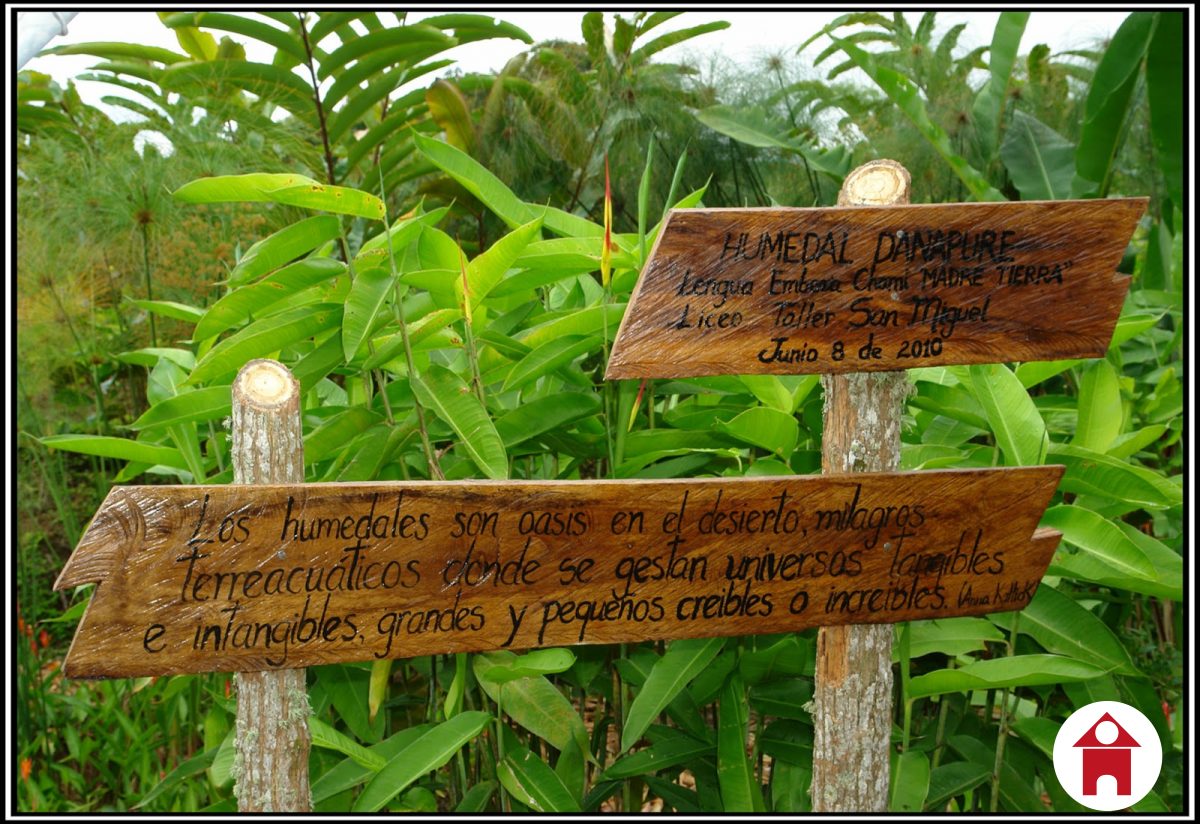 HUMEDAL DANAPURE
"Lengua Embera Chamí "MADRE TIERRA"
Liceo Taller San Miguel
Junio 8 de 2010
Los humedales son oasis en el desierto, milagros
terreacuáticos donde se gestan universos tangibles
e intangibles, grandes y pequeños creibles o increibles. (Anna